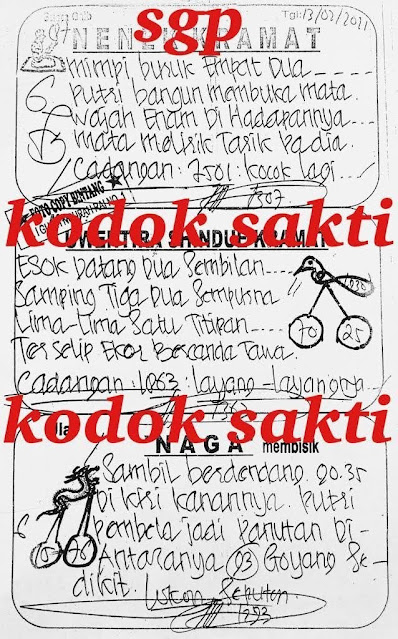 sgp
Tgl: 13/02/2021
NENEK KRAMAT
mimpi busuk Empat Dua
Putri bangun membuka mata.
Wajah Enam Di Hadapannya
mata melisik Tasik Padia.
Cadangan: 7501: kocok lagi
1307
FOTO COPY BINTANG
kodok sakti
DWEKTIRA SHINDUE KRAMAT
Esok Datang Dua Sembilan
Samping Tiga Dua Sempurna
Lima-Lima Satu Titipan
Terselip Ekor Bercanda Tawa.
70 25
Cadangan: 1063: layang-layangnya
kodok sakti
NAGA membisik
Sambil berdendang 00.35
Di kiri kanannya. Putri
pembela jadi panutan Di-
Antaranya 03 Goyang Se-
dikit.